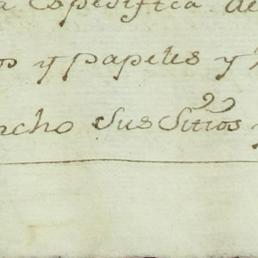 a Espesifica de
os y papeles y
ncho sus Sitios y